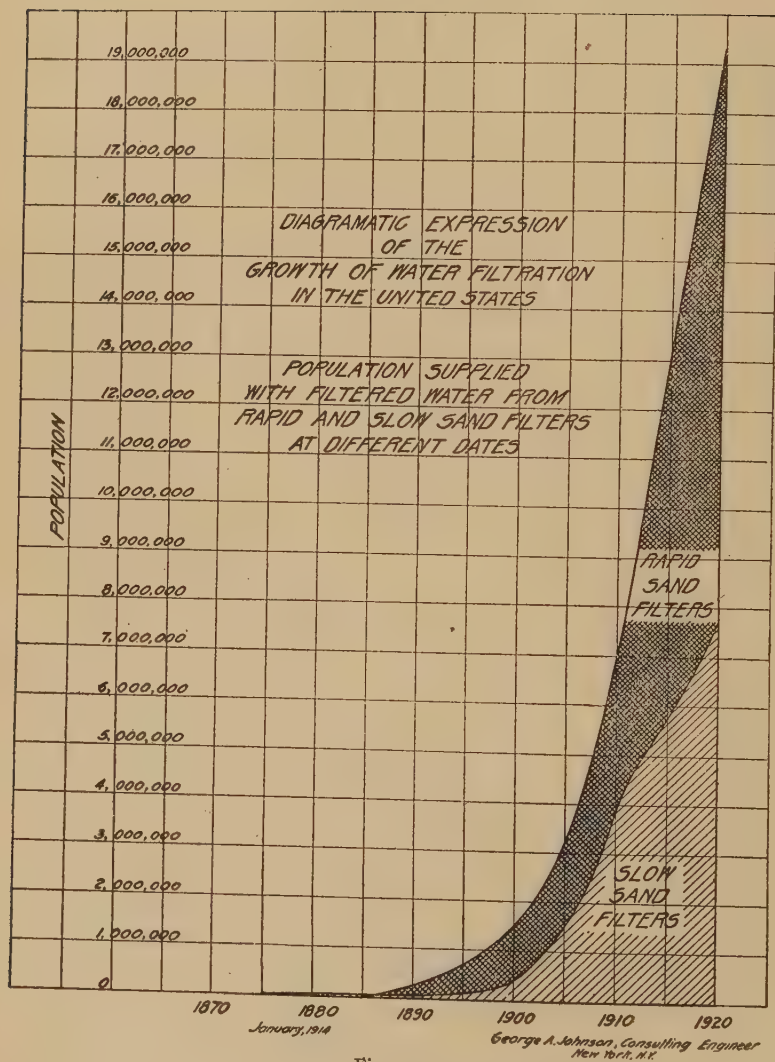 19,000,000
18,000,000
17,000,000
16,000,000
15,000,000
14,000,000
13,000,000
12,000,000
11,000,000
10,000,000
9,000,000
8,000,000
7,000,000
6,000,000
5,000,000
4,000,000
3,000,000
2,000,000
1,000,000
0
POPULATION
DIAGRAMATIC EXPRESSION
OF THE
GROWTH OF WATER FILTRATION
IN THE UNITED STATES
POPULATION SUPPLIED
WITH FILTERED WATER FROM
RAPID AND SLOW SAND FILTERS
AT DIFFERENT DATES
RAPID
SAND
FILTERS
SLOW
SAND
FILTERS
1870 1880 1890 1900 1910 1920
January, 1914
George A. Johnson, Consulting Engineer
New York, N.Y.